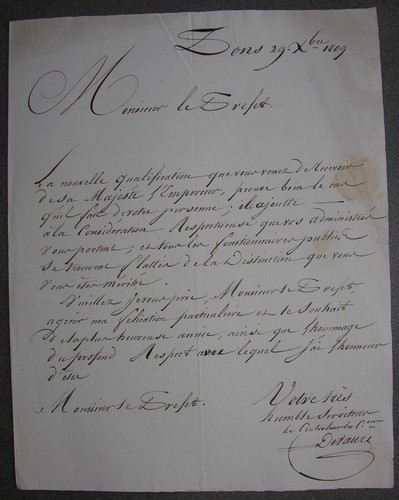 29 Xbre 1809.
Monsieur le Prefet.
La nouvelle Qualification que vous venez de Recevoir
de sa Majesté l'Empereur, prouve bien le cas
qu'il fait de votre personne; il ajoutte
à la Considération Respectueuse que vos administrés
vous portent; et tous les fonctionnaires publics
se trouvent flattés de la Distinction que vous
vous êtes méritée.
Veuillez je vous prie, Monsieur le Prefet
agréer ma félicitation particulière et le souhait
de la plus heureuse année, ainsi que l'hommage
du profond Respect avec lequel j'ai l'honneur
d'être
Monsieur le Prefet.
Votre très
humble Serviteur
le Controleur du